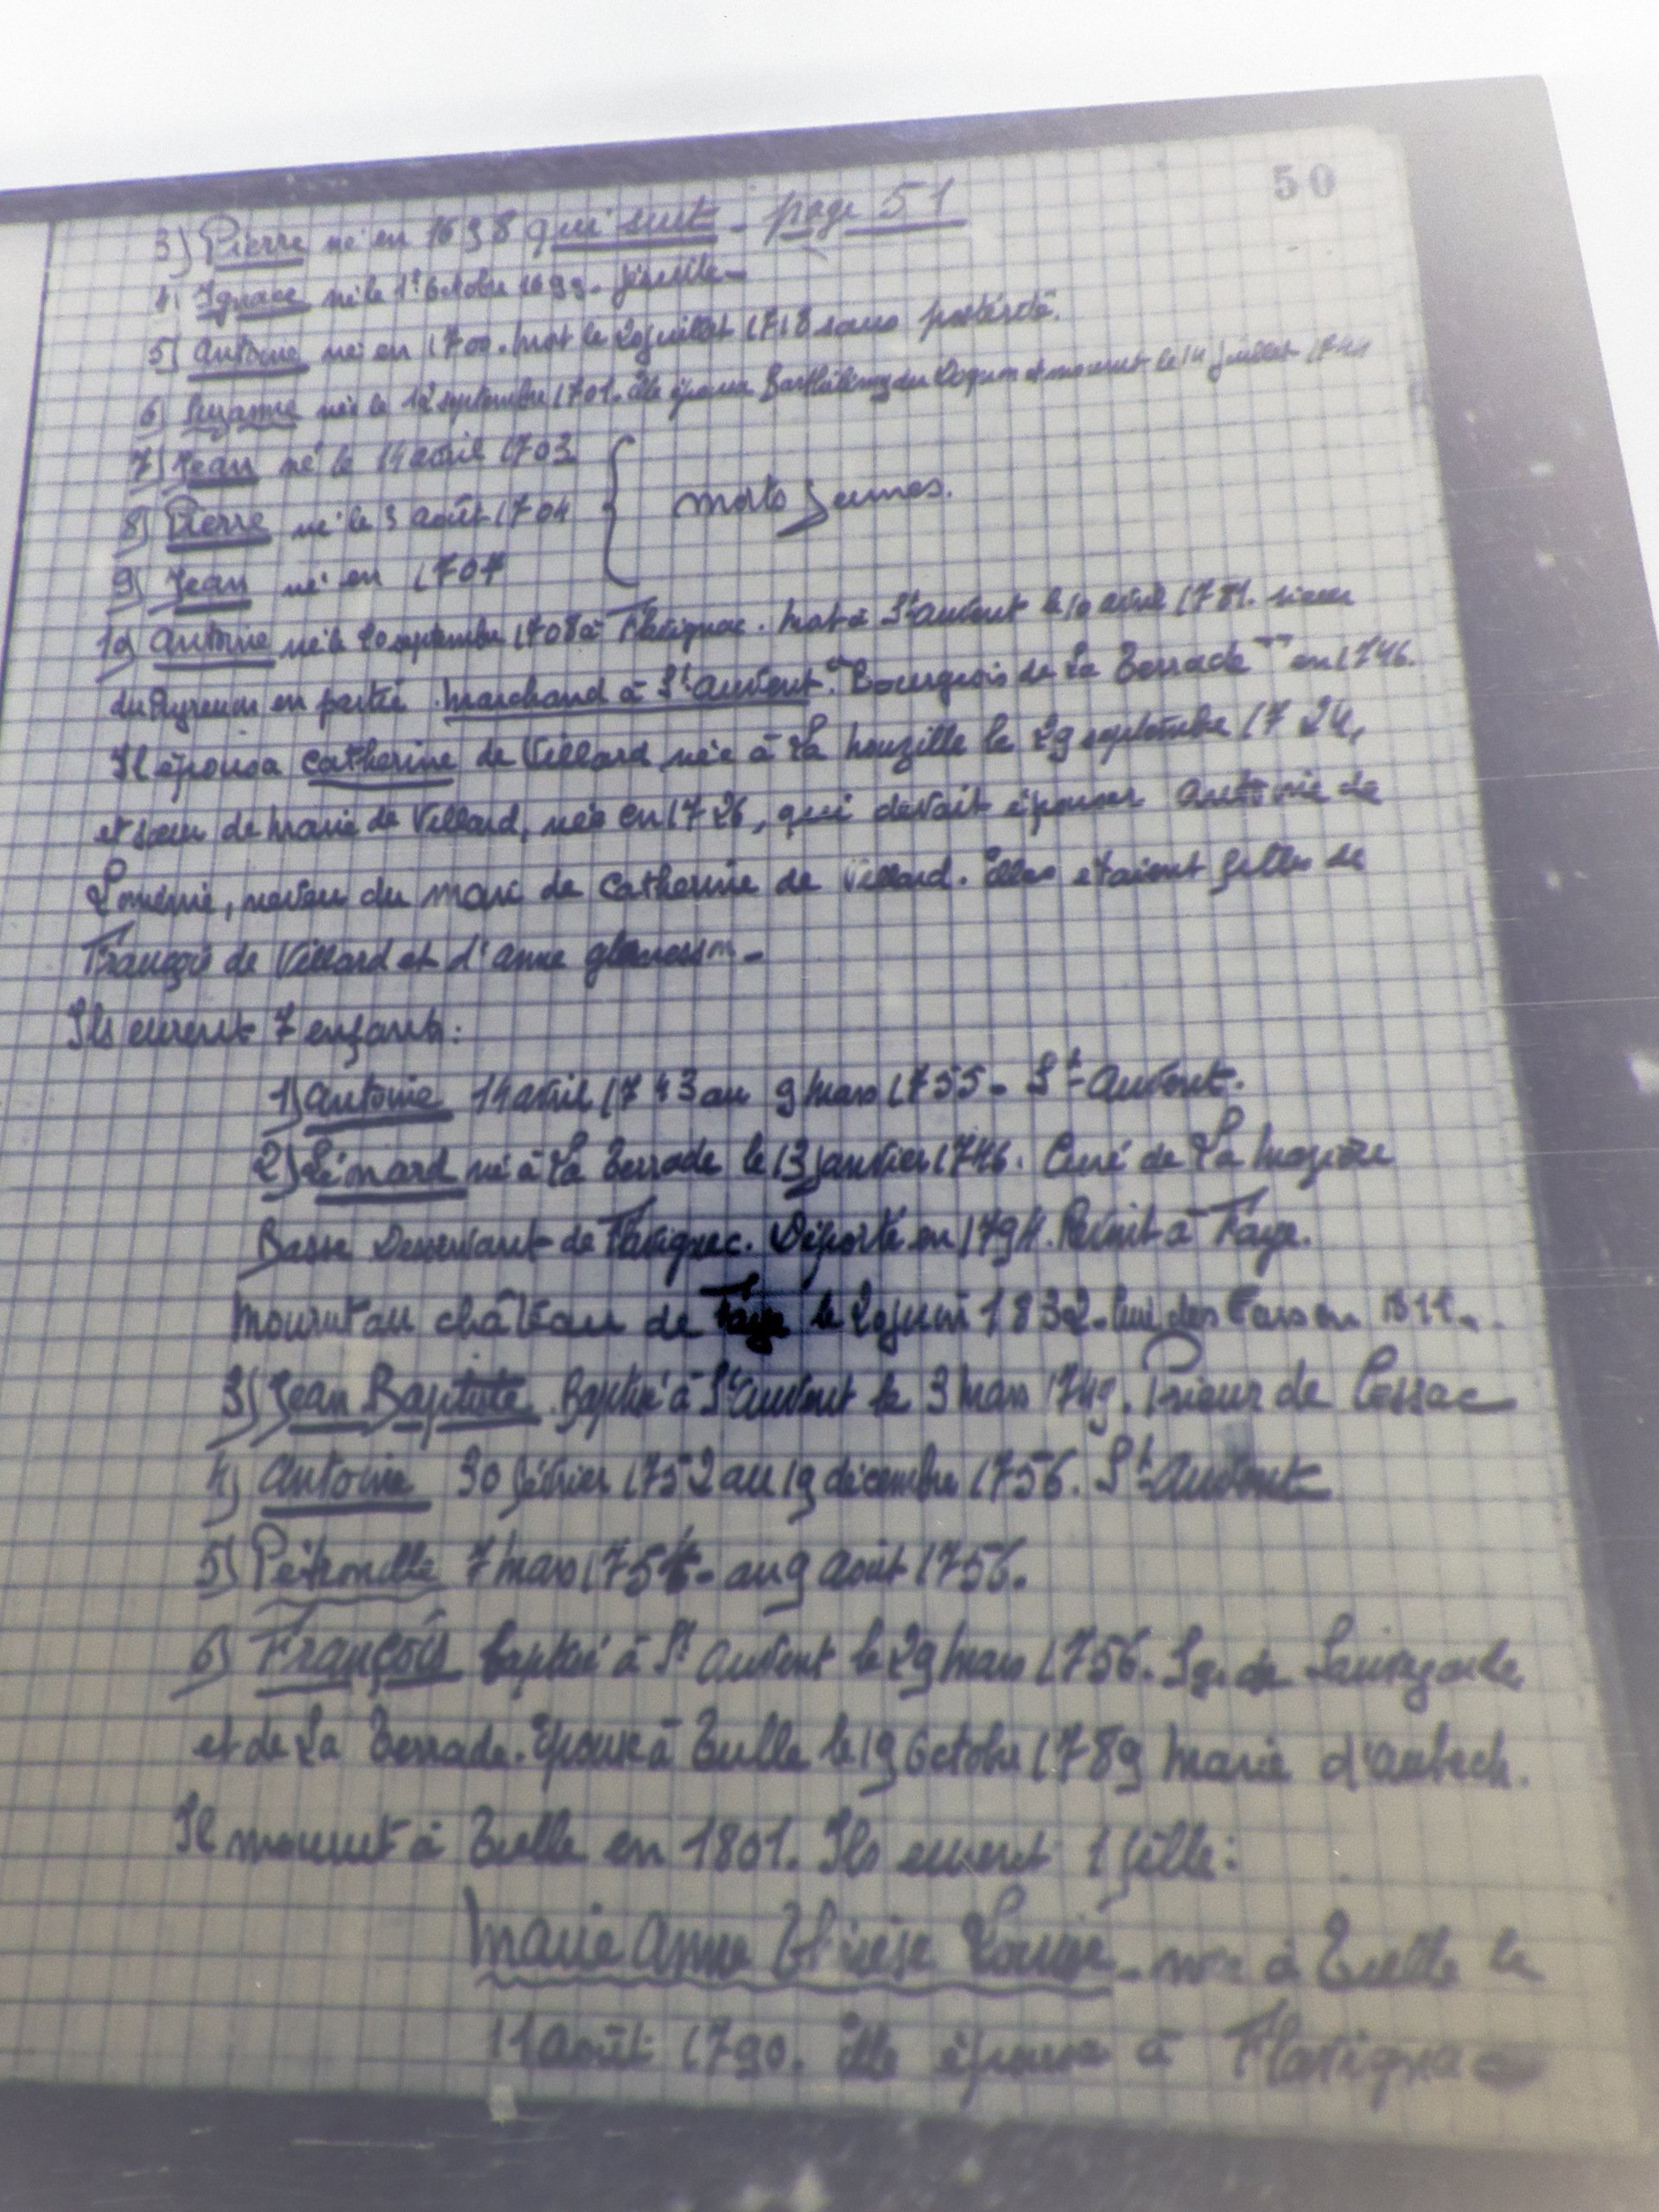 50
3) Pierre né en 1698 qui suit - page 51
4) Ignace né le 1er Octobre 1699. Jésuite -
5) Antoine né en 1700. Mort le 20 juillet 1718 sans postérité.
6) Suzanne née le 12 septembre 1701. Elle épousa Barthélemy du et mourut le 14 juillet 1741
7) Jean né le 14 avril 1703
8) Pierre né le 3 août 1704 { morts jeunes.
9) Jean né en 1707
10) Antoine né le 20 septembre 1708 à Flavignac. Mort à St Auvent le 10 avril 1781. sieur
du Puyrenon en partie. Marchand à St Auvent. "Bourgeois de La Terrade" en 1746.
Il épousa Catherine de Villard née à La houzille le 29 septembre 1724,
et sœur de Marie de Villard, née en 1726, qui devait épouser Antoine de
Loménie, neveu du mari de Catherine de Villard. Elles étaient filles de
François de Villard et d'Anne
Ils eurent 7 enfants :
1) Antoine 14 avril 1743 au 9 Mars 1755 - St Auvent.
2) Léonard né à La Terrade le 13 janvier 1746. Curé de La Mazière
Basse Desservant de Flavignac. Déporté en 1794. Revint à Faye.
Mourut au château de Faye le 20 juin 1832. Curé des Cars en 1811.
3) Jean Baptiste. Baptisé à St Auvent le 3 Mars 1749. Prieur de Cossac
4) Antoine 30 février 1752 au 19 décembre 1756. St Auvent
5) Pétronille 7 Mars 1754 - au 9 Août 1756.
6) François baptisé à St Auvent le 29 Mars 1756. Sgr de Sauvegarde
et de La Terrade. Epouse à Tulle le 19 Octobre 1789 Marie d'Arbech.
Il mourut à Tulle en 1801. Ils eurent 1 fille :
Marie Anne Thérèse Louise - née à Tulle le
11 août 1790. Elle épousa à Flavignac